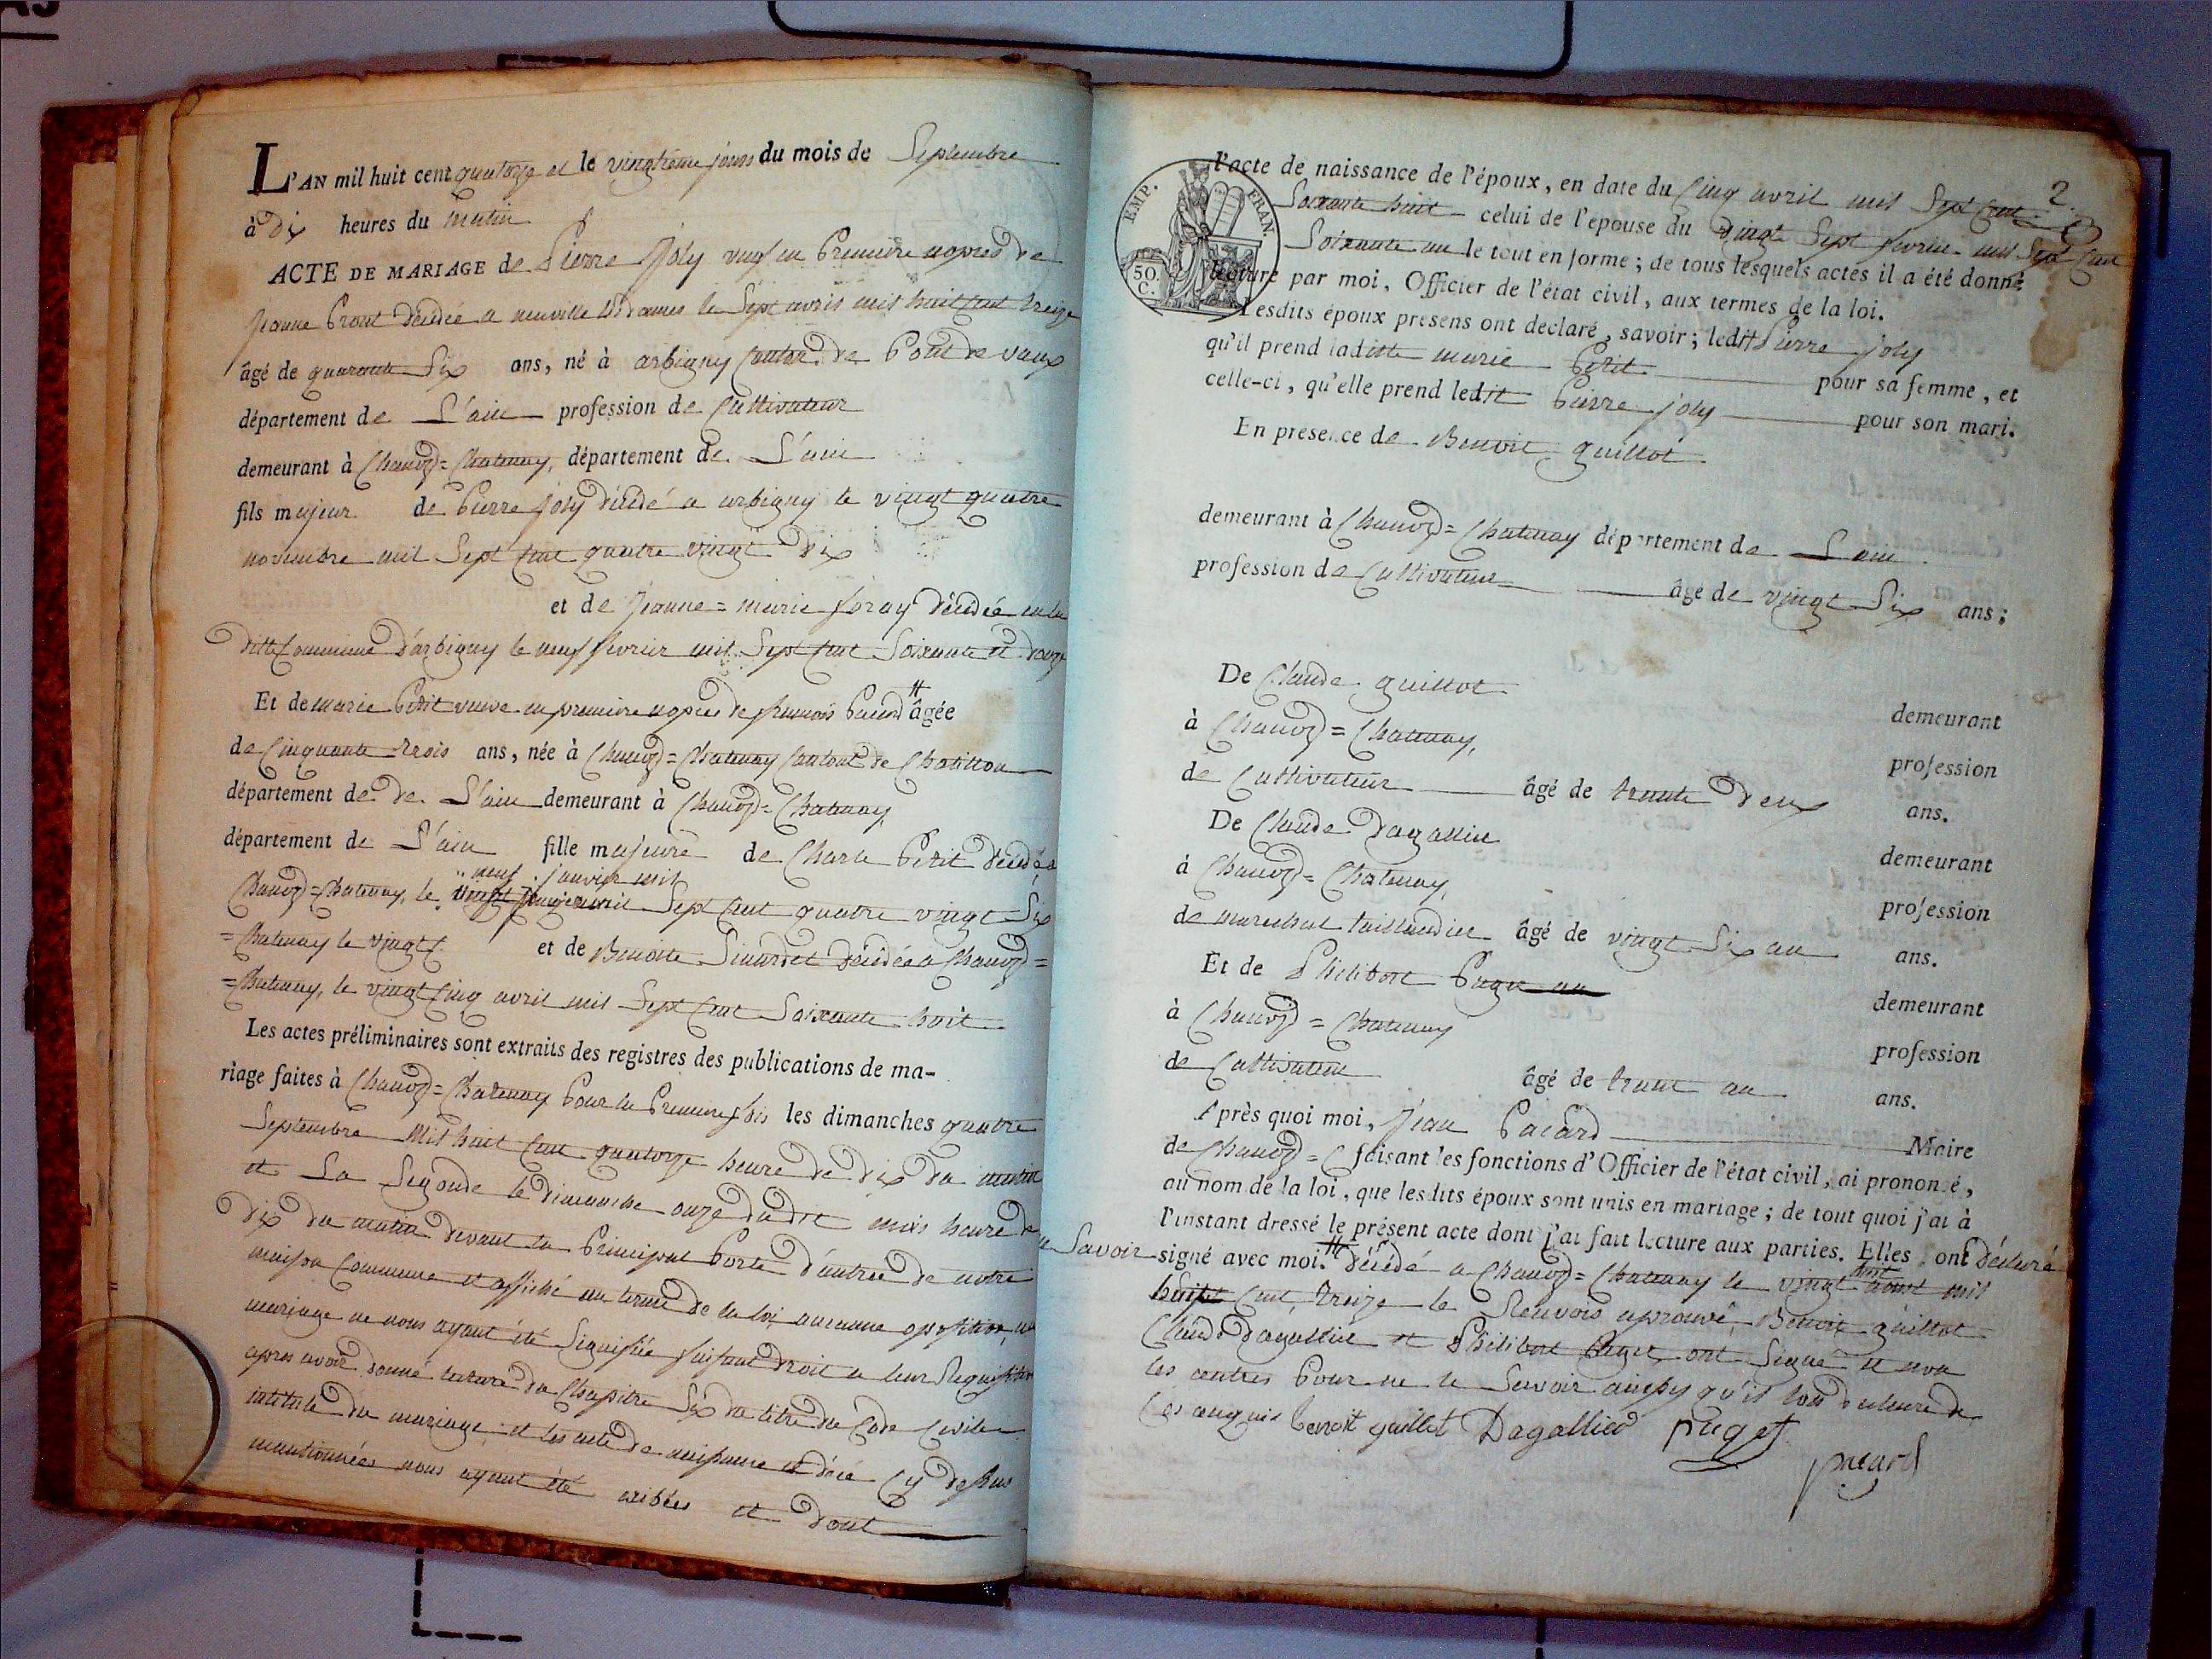 L'AN mil huit cent quatorze et le vingtieme jours du mois de Septembre
à Dix heures du matin
ACTE DE MARIAGE de Pierre Joly veuf en Premiere nopces de
Jeanne Pront décédée a neuville les dames le Sept avril mil huit Cent treize
âgé de quarante Six ans, né à arbigny Canton de Pont de vaux
département de L'ain profession de Cultivateur
demeurant à Chanoz=Chatenay, département de L'ain
fils majeur de Pierre joly décédé a arbigny le vingt quatre
novembre mil Sept Cent quatre vingt Dix
et de Jeanne=marie foray décédée en la
ditte Commune D'arbigny le neuf fevrier mil Sept Cent Soixante et douze
Et de marie Petit veuve en premiere nopces de francois Pacard # âgée
de Cinquante trois ans, née à Chanoz=Chatenay Canton de Chatillon
département de de L'ain demeurant à Chanoz=Chatenay,
département de L'ain fille majeure de Charle Petit décédé a
neuf janvier mil
Chanoz=Chatenay, le Sept Cent quatre vingt Six
=Chatenay le vingt et de Benoite décédée a Chanoz=
=Chatenay, le vingt Cinq avril mil Sept Cent Soixante huit
Les actes préliminaires sont extraits des registres des publications de ma-
riage faites à Chanoz=Chatenay Pour la Premiere fois les dimanches quatre
Septembre Mil huit Cent quatorze heure de dix du matin
et La Segonde le dimanche onze dudit mois heure de
Dix du matin devant la Principal Porte d'entrée de notre
maison Commune et affiché au terme de la loi aucune opposition au
mariage ne nous ayant été Signifiée faisant droit a leur Requisition
apres avoir donné lecture du Chapitre Six du titre du Code Civile
intitulé du mariage et les acte de naissance et décé Cy dessus
mentionnées nous ayant été exibées et dont
2.
EMP. FRAN.
50. C.
l'acte de naissance de l'époux, en date du Cinq avril mil Sept Cent
Soixante huit celui de l'epouse du vingt Sept fevrier mil Sept Cent
Soixante un le tout en forme; de tous lesquels actes il a été donné
lecture par moi, Officier de l'état civil, aux termes de la loi.
Lesdits époux présens ont declaré, savoir; ledit Pierre joly
qu'il prend laditte marie Petit pour sa femme, et
celle-ci, qu'elle prend ledit Pierre joly pour son mari.
En presence de Benoit guillot
demeurant à Chanoz=Chatenay département de L'ain
profession de Cultivateur âgé de vingt Six ans;
De Claude guillot demeurant
à Chanoz=Chatenay, profession
de Cultivateur âgé de trente deux ans.
De Claude Dagallier demeurant
à Chanoz=Chatenay, profession
de marechal taillandier âgé de vingt Six an ans.
Et de Philibert Puget demeurant
à Chanoz=Chatenay profession
de Cultivateur âgé de trent an ans.
Après quoi moi, Jean Pacard Maire
de Chanoz=C faisant les fonctions d'Officier de l'état civil, ai prononcé,
au nom de la loi, que lesdits époux sont unis en mariage; de tout quoi j'ai à
l'instant dressé le présent acte dont j'ai fait lecture aux parties. Elles ont déclaré
Savoir signé avec moi. # décédé a Chanoz=Chatenay le vingt huit aout mil
huit Cent treize le Renvois aprouvé, Benoit guillot
Claude Dagallier et Philibert Puget, ont Signé et non
les autres Pour ne le Savoir ainsy qu'il lont declaré de
Ce enquis benoit guillot Dagallier puget
pacard